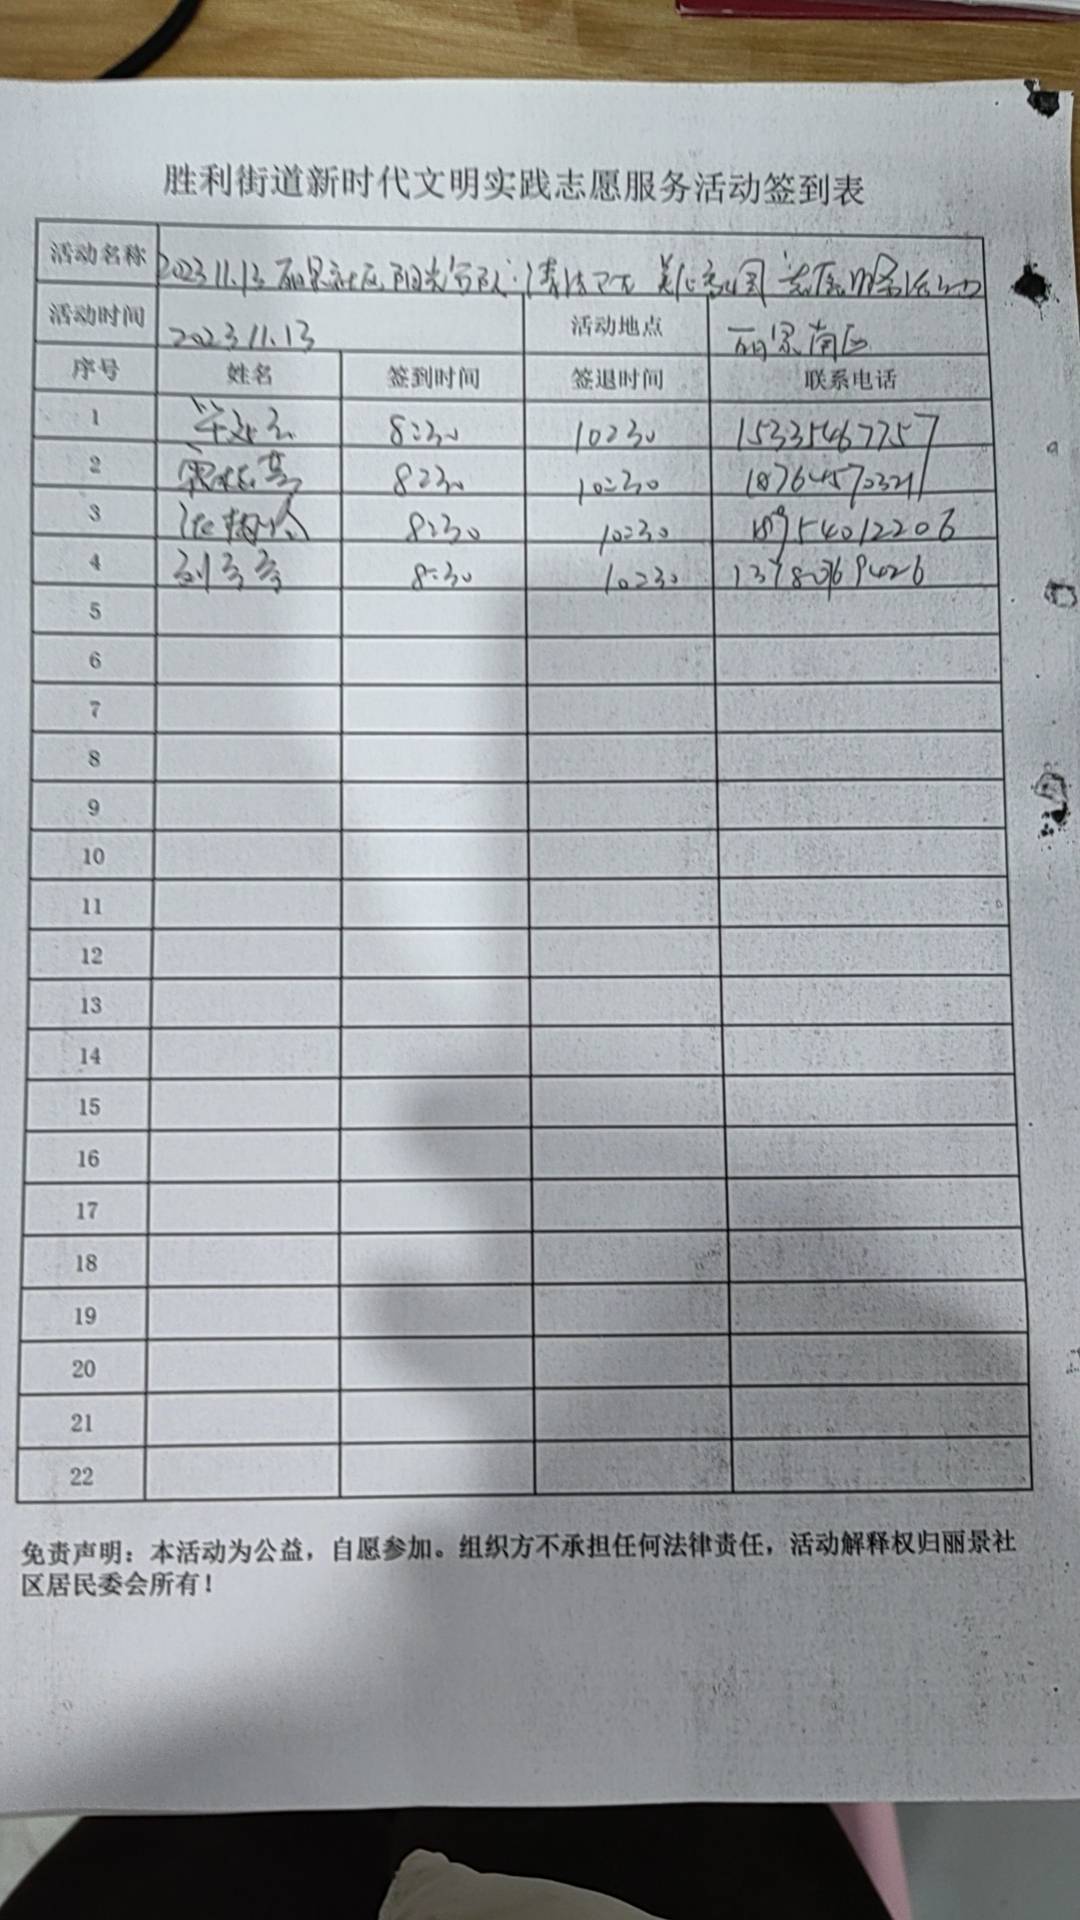 胜利街道新时代文明实践志愿服务活动签到表
活动名称 2023.11.13 丽景社区阳光 清洁卫生 美化家园 志愿服务活动
活动时间 2023.11.13 活动地点 丽景南区
序号 姓名 签到时间 签退时间 联系电话
1 8:30 10:30 15335467757
2 8:30 10:30 18764570321
3 8:30 10:30 18954012206
4 8:30 10:30
5
6
7
8
9
10
11
12
13
14
15
16
17
18
19
20
21
22
免责声明：本活动为公益，自愿参加。组织方不承担任何法律责任，活动解释权归丽景社
区居民委会所有！